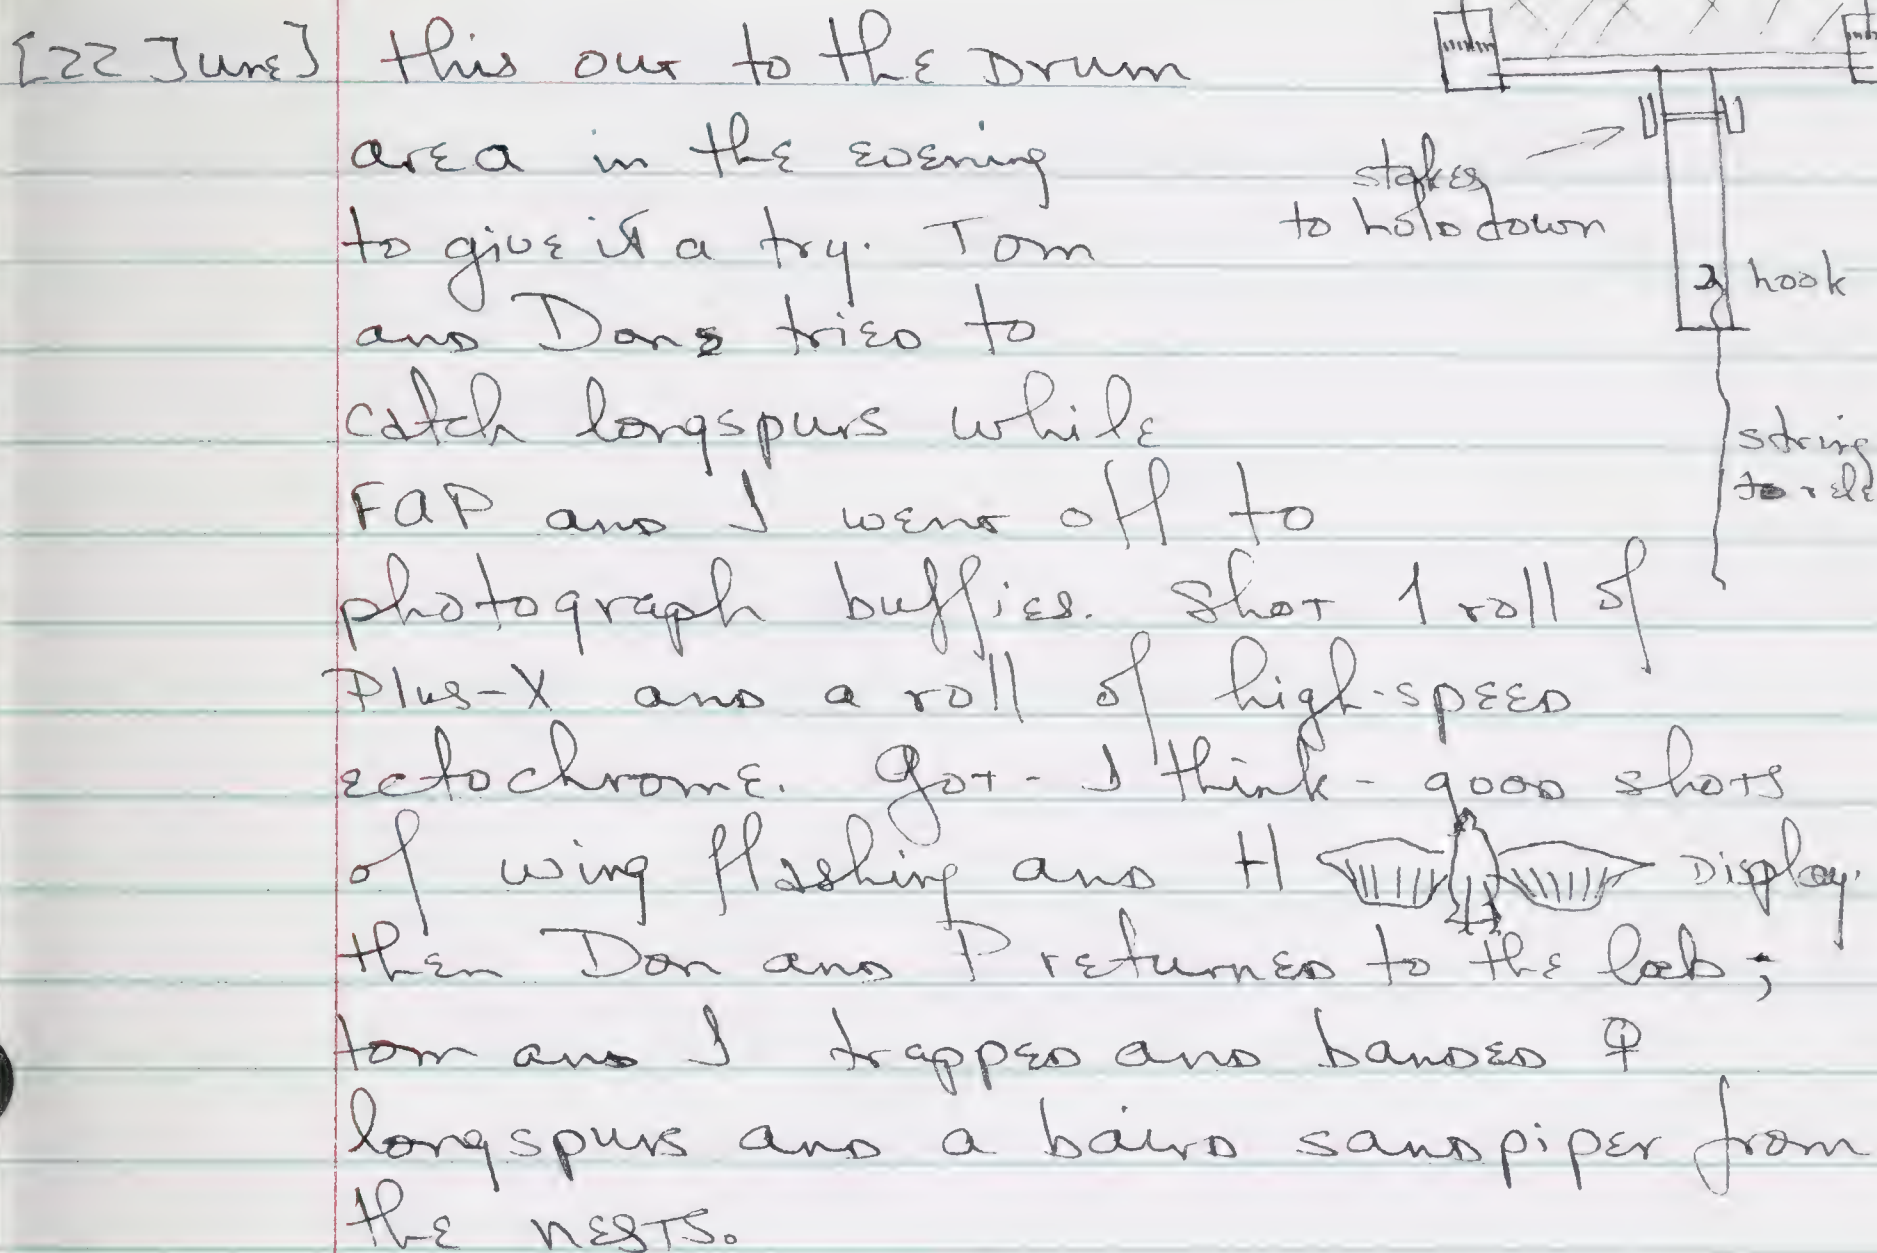 [22 June] this out to the Drum
area in the evening
to give it a try. Tom
and Done tried to
catch longspurs while
FAP and I went off to
photograph buffies. Shot 1 roll of
Plus-X and a roll of high-speed
ectochrome. Got - I think - good shots
of wing flashing and H display.
then Don and P returned to the lab;
tom and I trapped and banded ♀
longspurs and a baird sandpiper from
the nests.
stakes
to hold down
hook
string
to rele